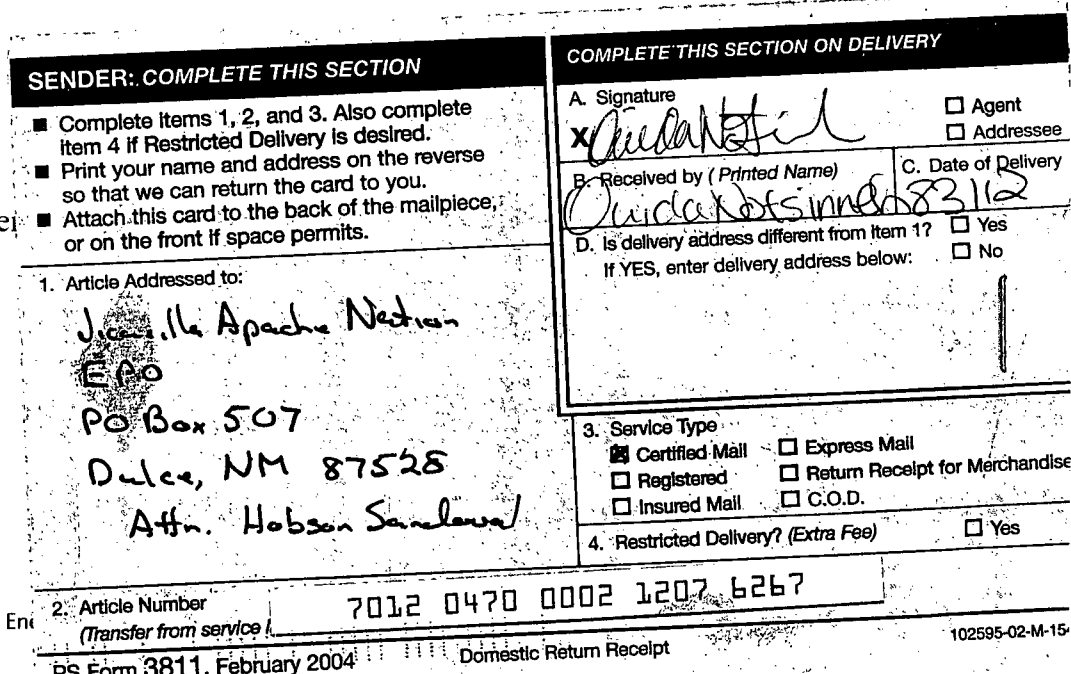 SENDER: COMPLETE THIS SECTION
■ Complete items 1, 2, and 3. Also complete
item 4 if Restricted Delivery is desired.
■ Print your name and address on the reverse
so that we can return the card to you.
■ Attach this card to the back of the mailpiece,
or on the front if space permits.
1. Article Addressed to:
Jicarilla Apache Nation
EPO
PO Box 507
Dulce, NM 87528
Attn. Hobson Sandoval
2. Article Number
(Transfer from service l
7012 0470 0002 1207 6267
PS Form 3811, February 2004
Domestic Return Receipt
102595-02-M-154
COMPLETE THIS SECTION ON DELIVERY
A. Signature
X
☐ Agent
☐ Addressee
B. Received by (Printed Name)
C. Date of Delivery
Ouida Notsinneh 83112
D. Is delivery address different from item 1? ☐ Yes
If YES, enter delivery address below: ☐ No
3. Service Type
☒ Certified Mail ☐ Express Mail
☐ Registered ☐ Return Receipt for Merchandise
☐ Insured Mail ☐ C.O.D.
4. Restricted Delivery? (Extra Fee) ☐ Yes